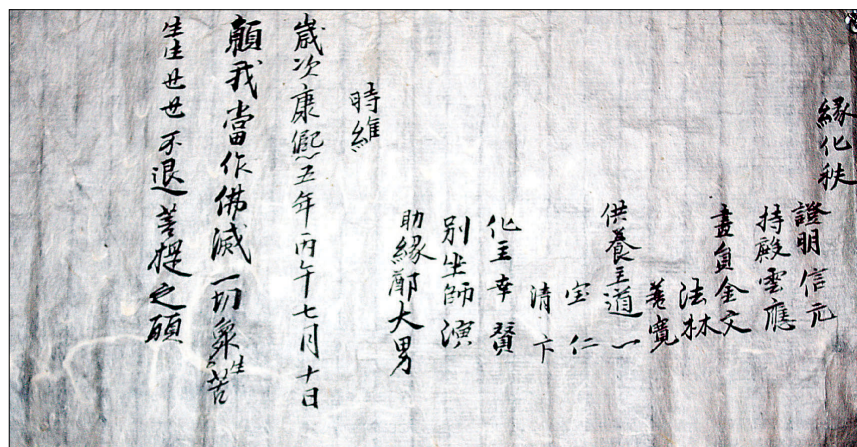 緣化秩
證明信元
持殿雲應
畵員金文
法林
善寬
供養主道一
宝仁
清卞
化主幸贊
別坐師演
助緣鄭大男
時維
歲次康熙五年丙午七月十日
願我當作佛滅一切衆生苦
生生世世不退菩提之願